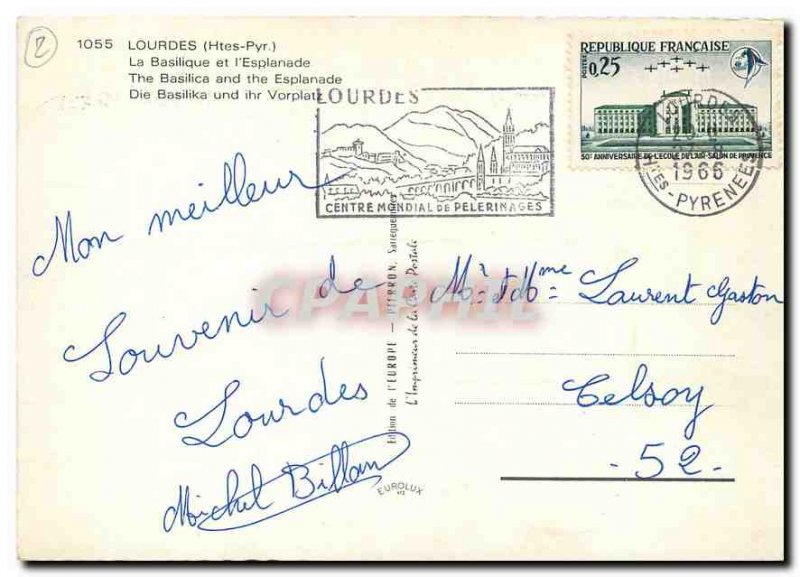 2
1055 LOURDES (Htes-Pyr.)
La Basilique et l'Esplanade
The Basilica and the Esplanade
Die Basilika und ihr Vorplatz
LOURDES
CENTRE MONDIAL DE PELERINAGES
RÉPUBLIQUE FRANÇAISE
POSTES
0,25
50e ANNIVERSAIRE DE L'ECOLE DE L'AIR-SALON DE PROVENCE
LOURDES
1966
Htes-PYRENEES
Mon meilleur
Souvenir de
Lourdes
Michel Billan
Edition de l'EUROPE — PIERRON, Sarreguemines
L'Imprimeur de la Carte Postale
EUROLUX
CPAPHIL
Mr et Mme Laurent Gaston
Celsoy
- 52 -